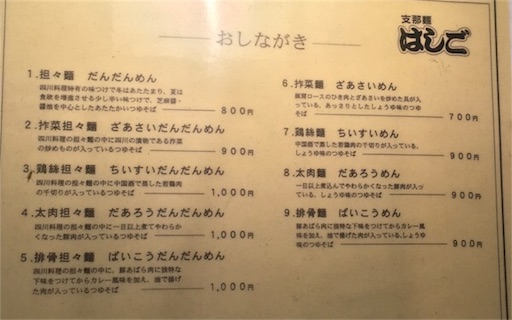 おしながき
支那麺
はしご
1.担々麺 だんだんめん
四川料理特有の味つけで冬はあたたまり、夏は
食欲を増進させる少し辛い味つけで、芝麻醤・
醤油を中心としたあたたかいつゆそば 800円
2.搾菜担々麺 ざあさいだんだんめん
四川料理の担々麺の中に四川の漬物である搾菜
の炒めものが入っているつゆそば 900円
3.鶏絲担々麺 ちいすいだんだんめん
四川料理の担々麺の中に中国酒で蒸した若鶏肉
の千切りが入っているつゆそば 1,000円
4.太肉担々麺 だあろうだんだんめん
四川料理の担々麺の中に一日以上煮てやわらか
くなった豚肉が入っているつゆそば 1,000円
5.排骨担々麺 ぱいこうだんだんめん
四川料理の担々麺の中に、豚あばら肉に独特な
下味をつけてからカレー風味を加え、油で揚げ
た肉が入っているつゆそば 1,000円
6.搾菜麺 ざあさいめん
豚肩ロースのひき肉とざあさいを炒めた具が入
っている、あっさりとしたしょうゆ味のつゆ
そば 700円
7.鶏絲麺 ちいすいめん
中国酒で蒸した若鶏肉の千切りが入っている、
しょうゆ味のつゆそば 900円
8.太肉麺 だあろうめん
一日以上煮込んでやわらかくなった豚肉が入っ
ている、しょうゆ味のつゆそば 900円
9.排骨麺 ぱいこうめん
豚あばら肉に独特な下味をつけてからカレー風
味を加え、油で揚げた肉が入っている、しょうゆ
味のつゆそば 900円